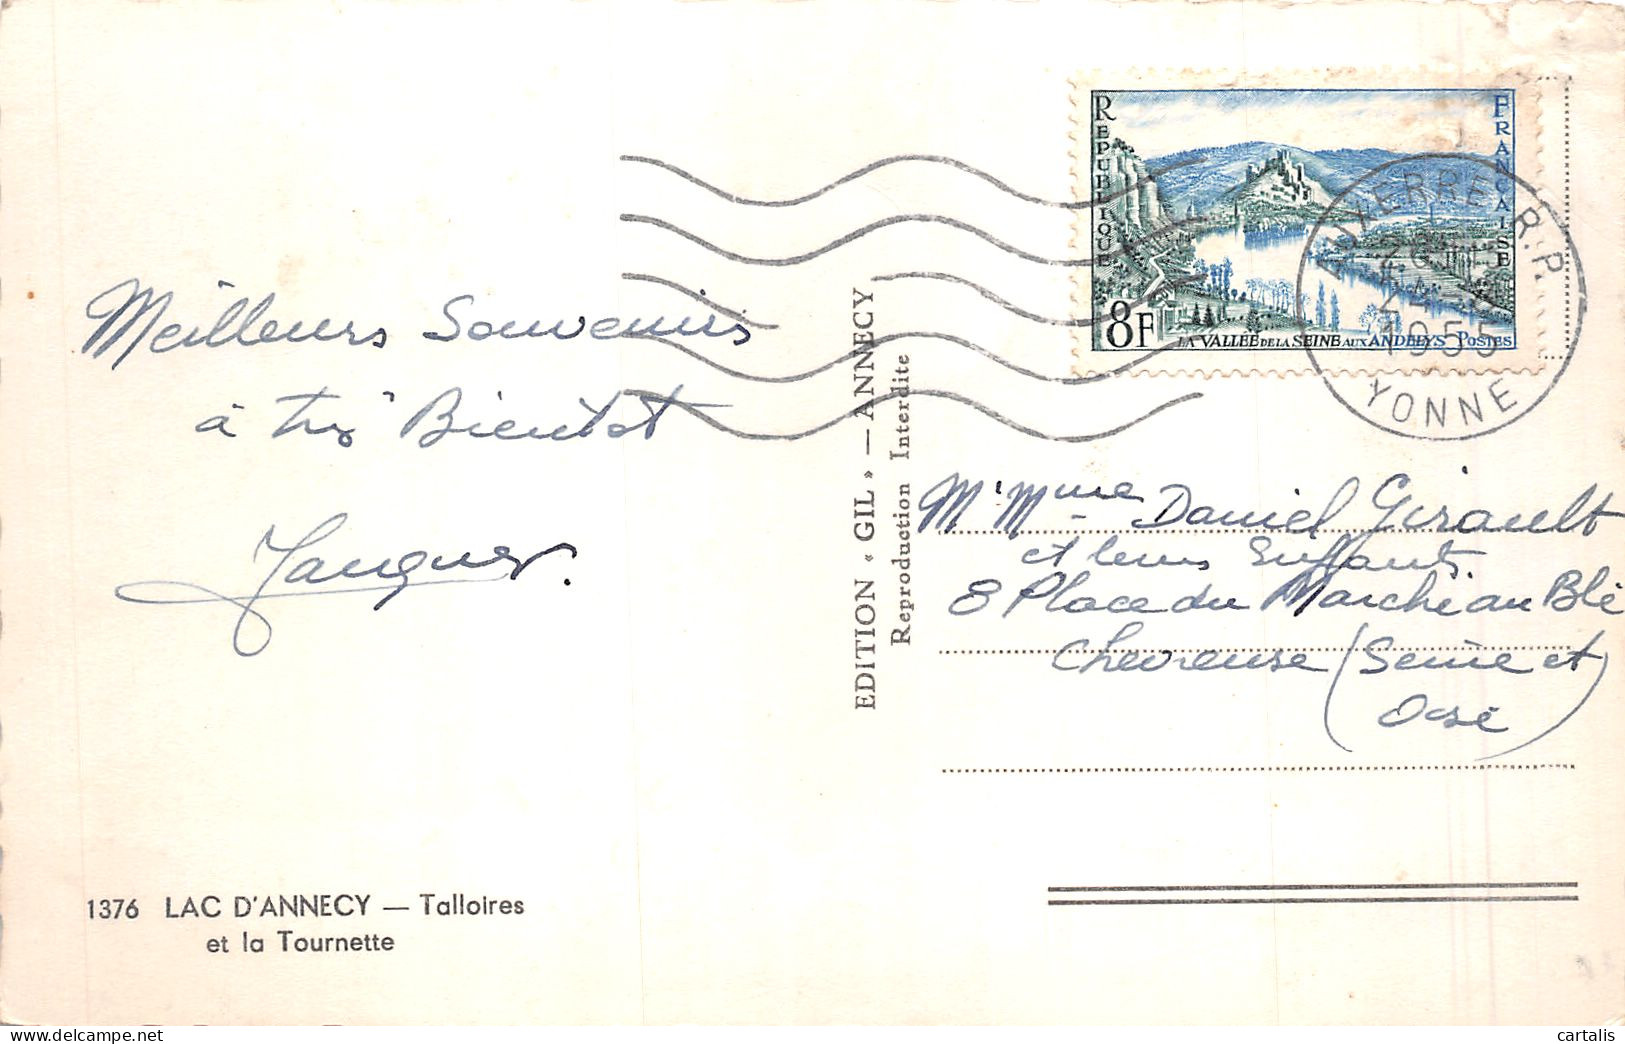 Meilleurs Souvenirs
à très Bientot
Jacques.
1376 LAC D'ANNECY — Talloires
et la Tournette
EDITION « GIL » — ANNECY
Reproduction Interdite
REPUBLIQUE
FRANCAISE
8F
LA VALLÉE DE LA SEINE AUX ANDELYS POSTES
AUXERRE R.P.
1955
YONNE
Mr Mme Daniel Girault
et leurs Enffants.
8 Place du Marché au Blé
Chevreuse (Seine et
Oise)
cartalis